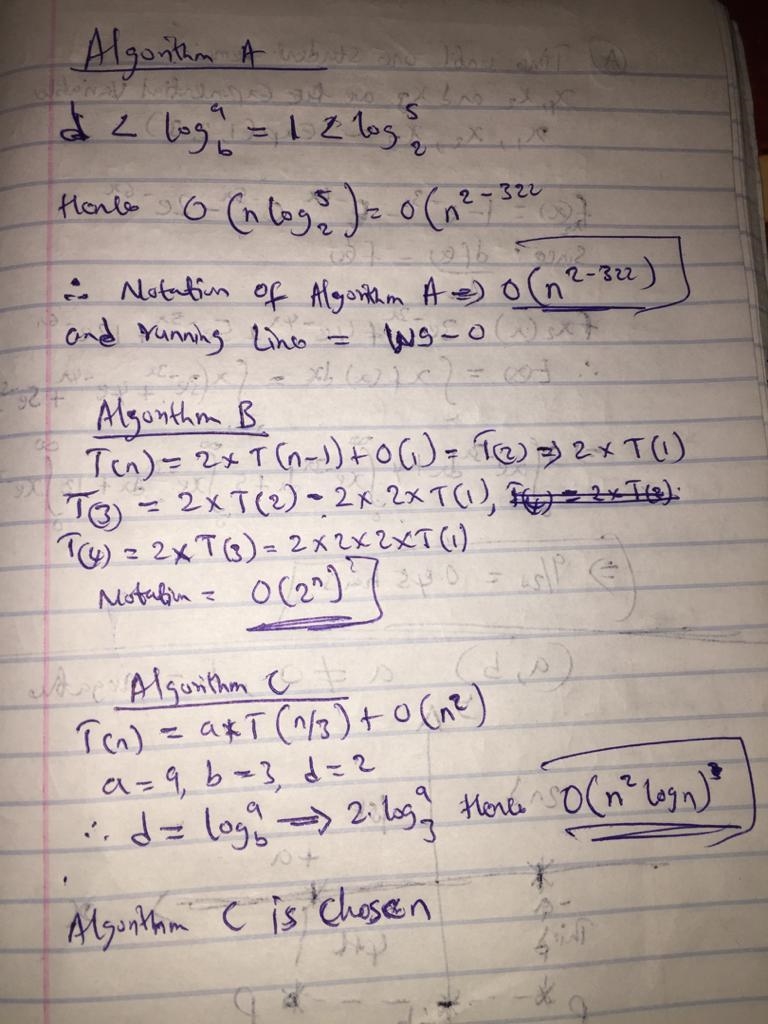 Algorithm A
d < log_b^a = 1 < log_2^5
Hence O(n log_2^5) = O(n^2-322
∴ Notation of Algorithm A => O(n^2-322)
and running time =
Algorithm B
T(n) = 2x T(n-1) + O(1) = T(2) => 2 x T(1)
T(3) = 2x T(2) - 2x 2x T(1),
T(4) = 2x T(3) = 2x2x2xT(1)
Notation = O(2^n)
Algorithm C
T(n) = a*T(n/3) + O(n^2)
a=9, b=3, d=2
∴ d = log_b^a => 2·log_3^9 Hence O(n^2 log n)
Algorithm C is chosen